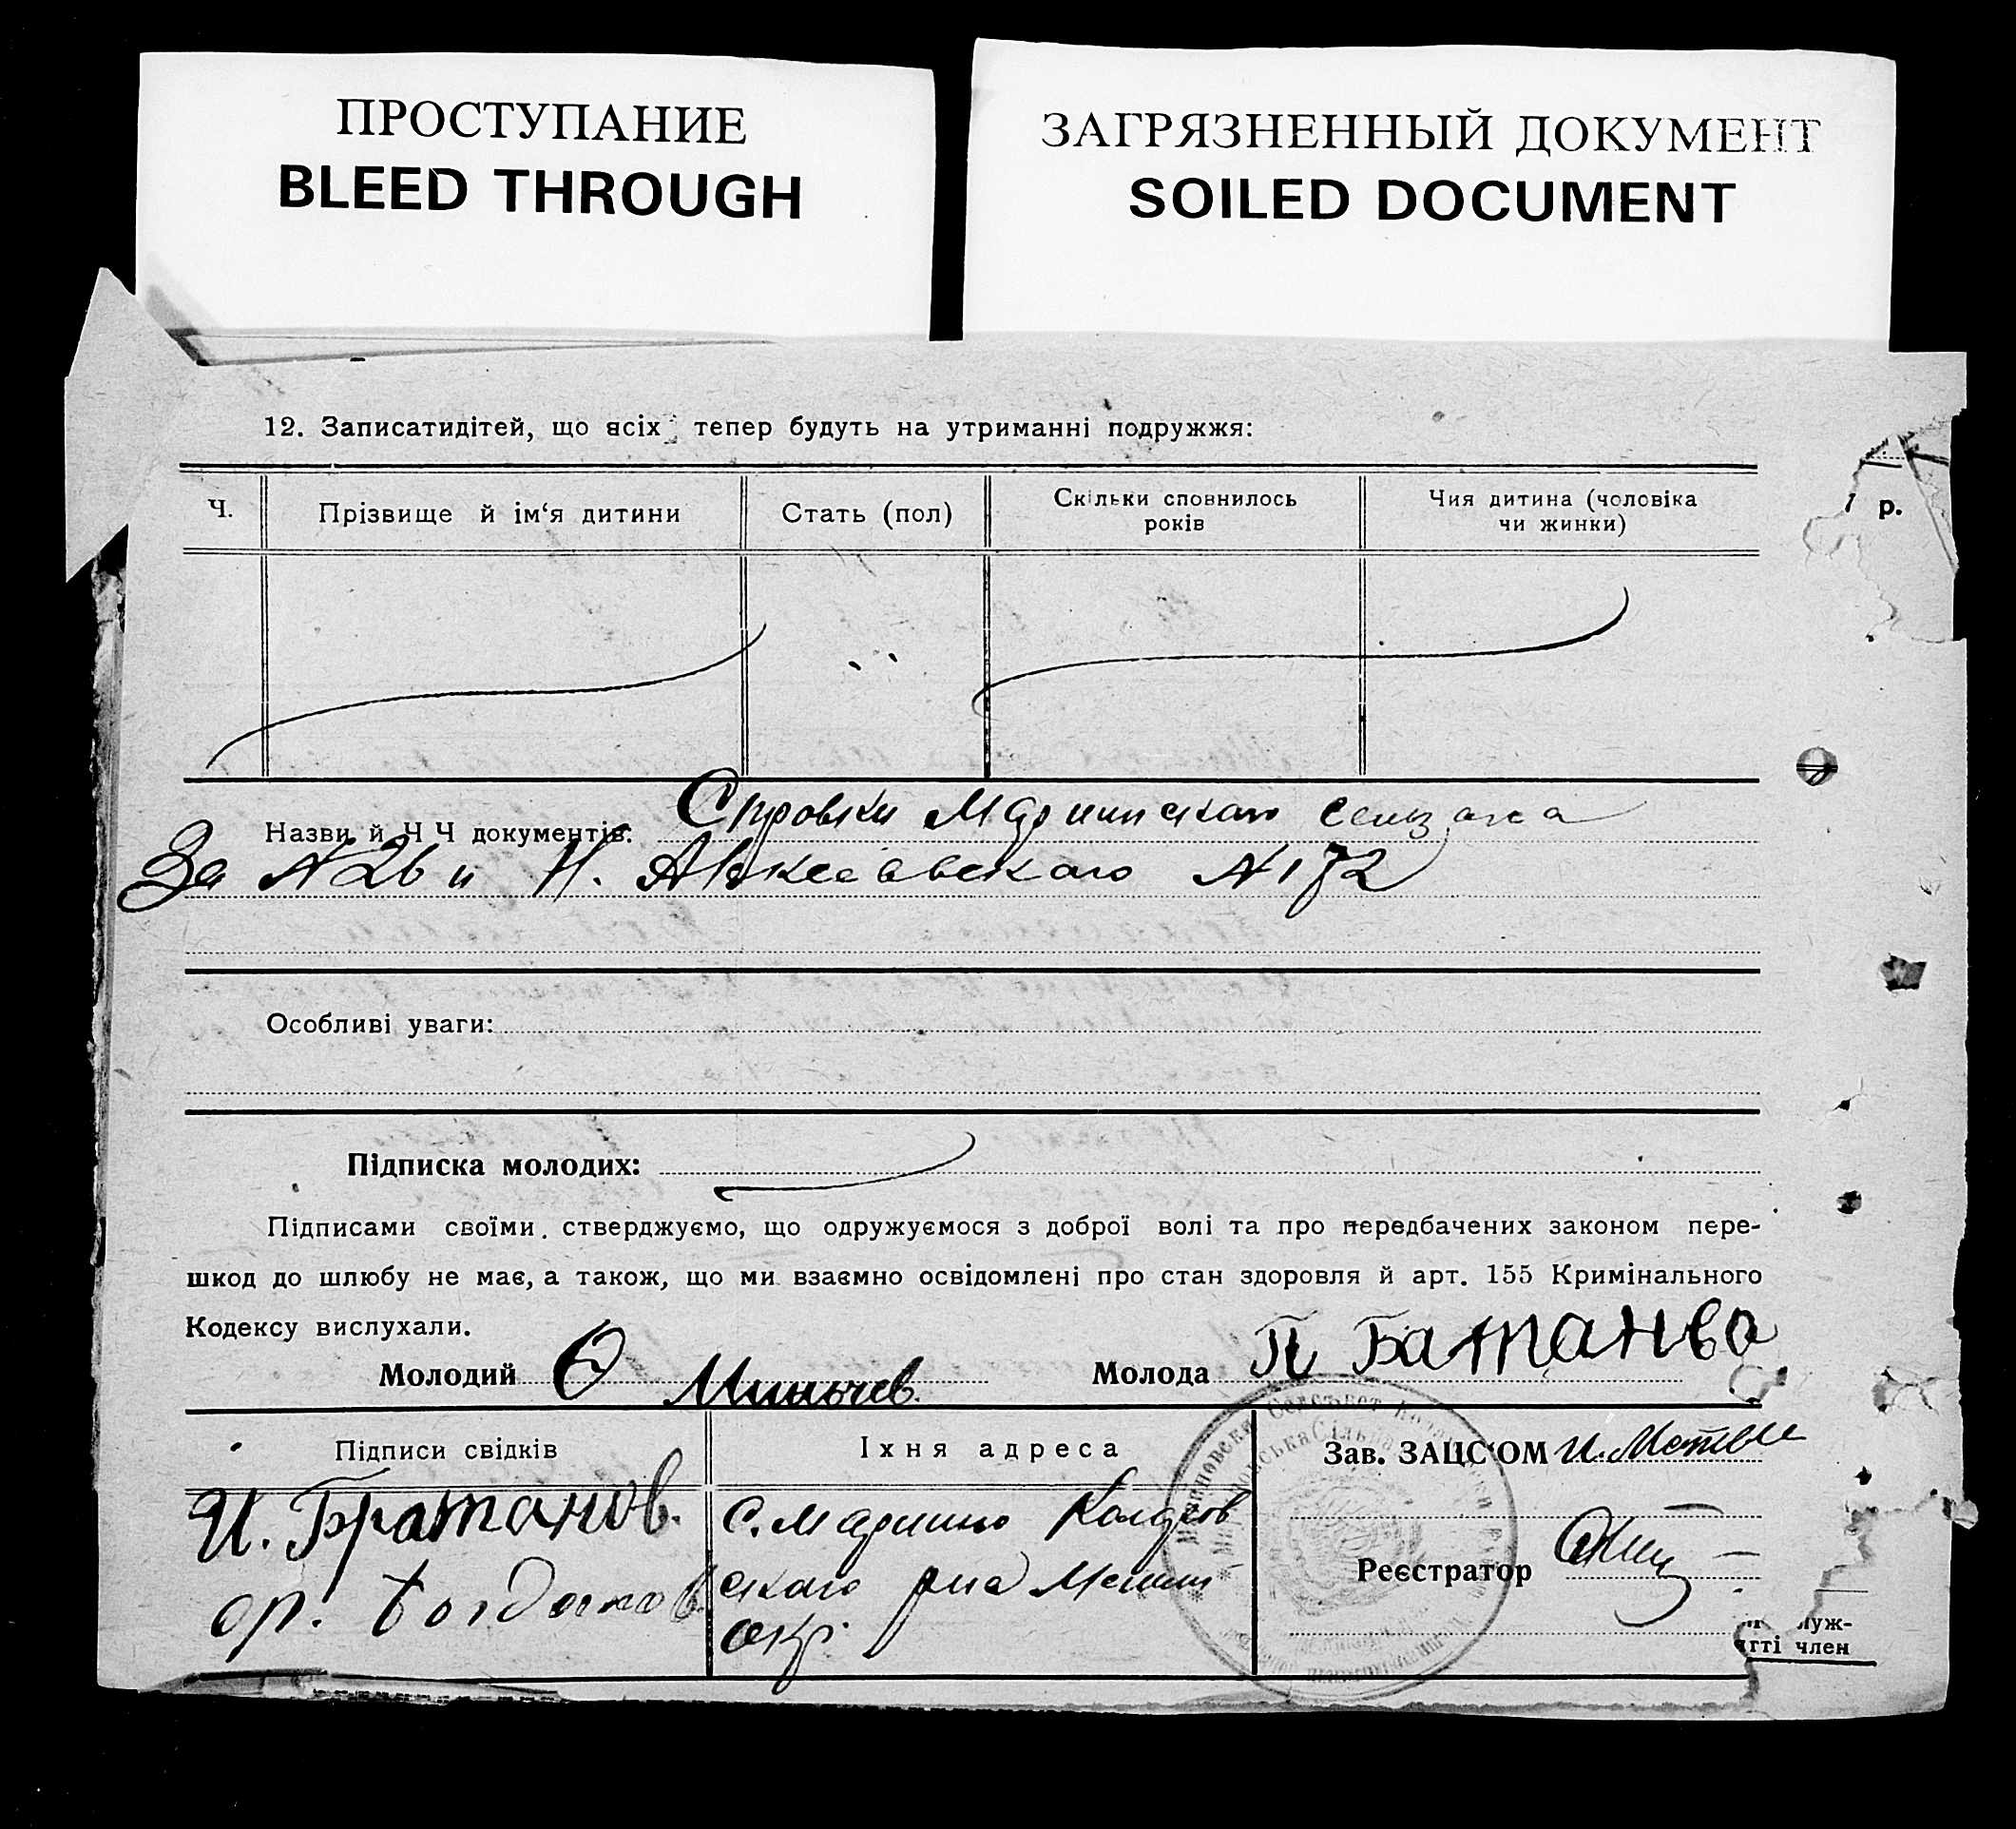 ПРОСТУПАНИЕ
BLEED THROUGH
ЗАГРЯЗНЕННЫЙ ДОКУМЕНТ
SOILED DOCUMENT
12. Записатидітей, що всіх тепер будуть на утриманні подружжя:
Ч.
Прізвище й ім‘я дитини
Стать (пол)
Скільки сповнилось
років
Чия дитина (чоловіка
чи жинки)
р.
Назви й Ч Ч документів:
За №26 и Н. №172
Особливі уваги:
Підписка молодих:
Підписами своїми стверджуємо, що одружуємося з доброї волі та про передбачених законом пере-
шкод до шлюбу не має, а також, що ми взаємно освідомлені про стан здоровля й арт. 155 Кримінального
Кодексу вислухали.
Молодий
Молода П Батанва
Підписи свідків
Їхня адреса
Зав. ЗАЦС‘ОМ
И. Братанов.
с.
ор. Богданов
окр.
Реєстратор
луж-
ятті член